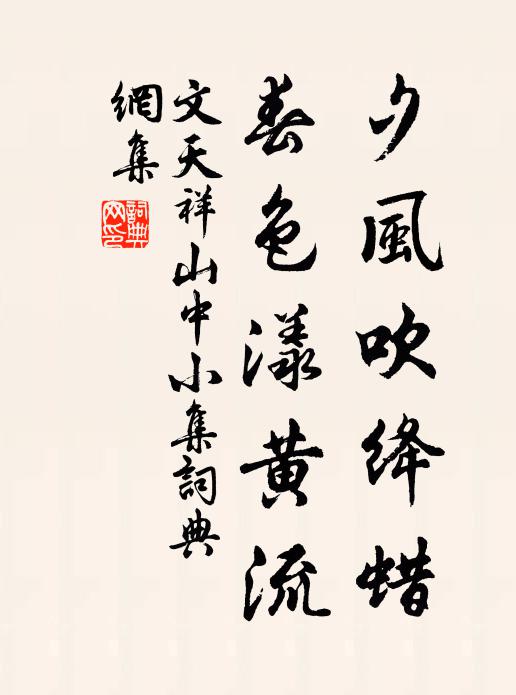 夕風吹绛蜡
春色漾黄流
文天祥山中小集詞典
網集
詞典网印